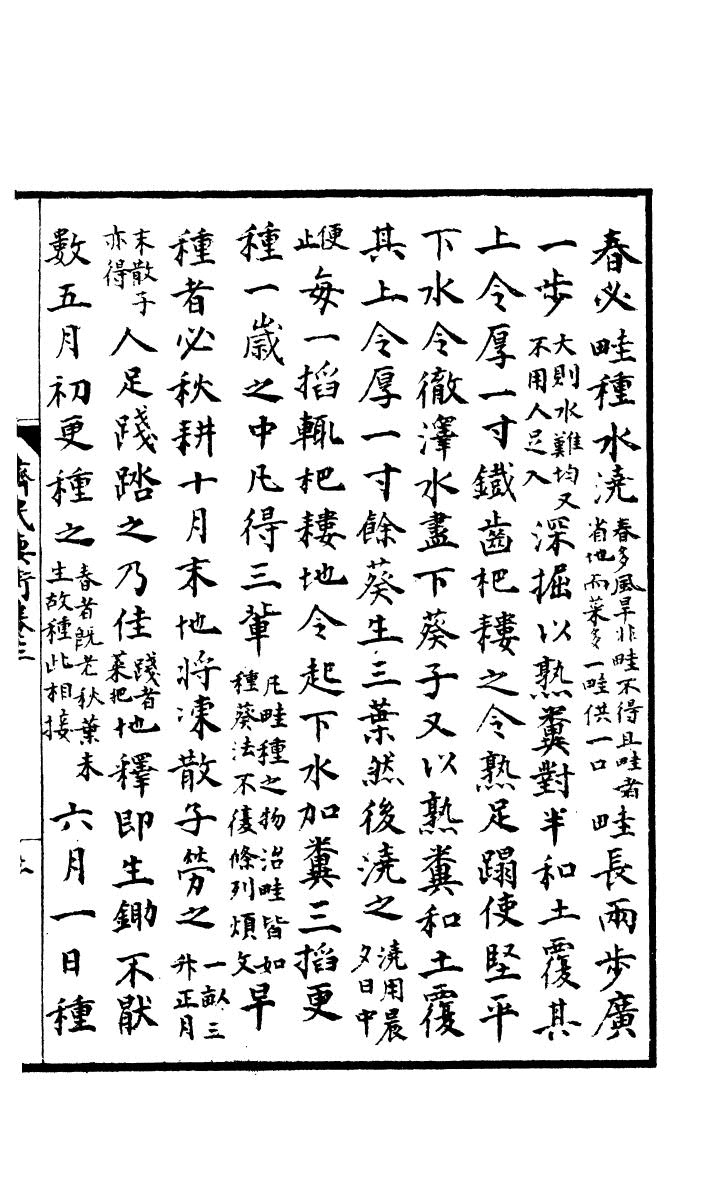 春必畦種水澆春多風旱非畦不得且畦者省地而菜多一畦供一口畦長兩步廣
一步大則水難均又不用人足入深掘以熟糞對半和土覆其
上令厚一寸鐵齒杷耬之令熟足蹋使堅平
下水令徹澤水盡下葵子又以熟糞和土覆
其上令厚一寸餘葵生三葉然後澆之澆用晨夕日中
便止每一搯輒杷耬地令起下水加糞三搯更
種一歲之中凡得三輩凡畦種之物治畦皆如種葵法不復條列煩文早
種者必秋耕十月末地將凍散子勞之一畝三升正月
末散子亦得人足踐踏之乃佳踐者菜肥地釋即生鋤不厭
數五月初更種之春者既老秋葉未生故種此相接六月一日種
齊民要術卷三